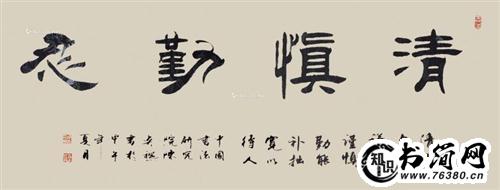 清慎勤忍
谨慎
勤能
补拙
宽以
待人
中国
书法
研究
院陈
书于
甲午
年
夏月
知识
书简网
www.76380.cn